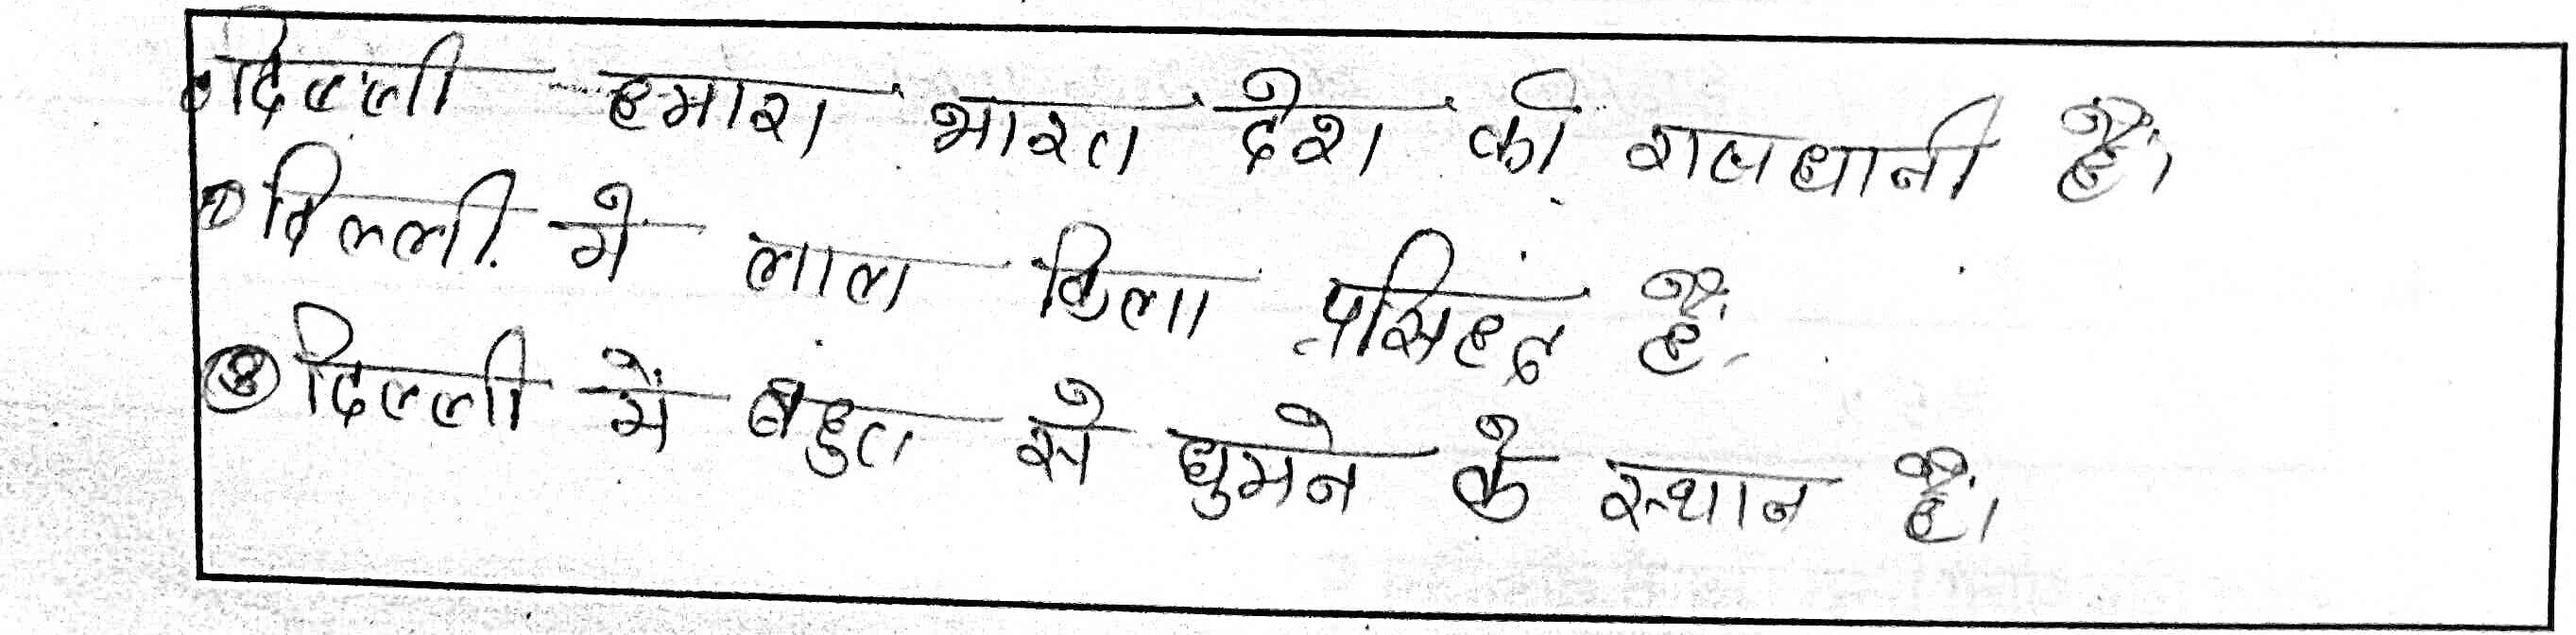 ① दिल्ली हमारा भारत देश की राजधानी हैं।
② दिल्ली में लाल किला प्रसिद्द हैं।
③ दिल्ली में बहुत से घुमने के स्थान हैं।